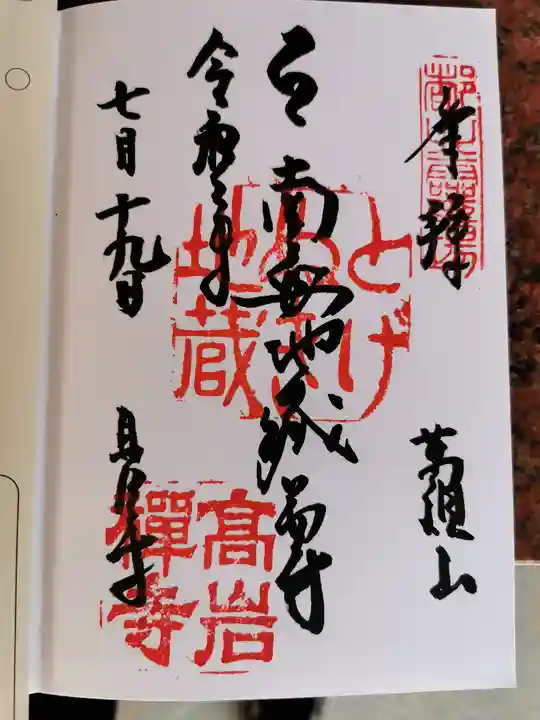 奉拝
萬頂山
南無地蔵尊
令和二年
七月十九日
高岩寺
とげぬき
地蔵
高岩
禅寺